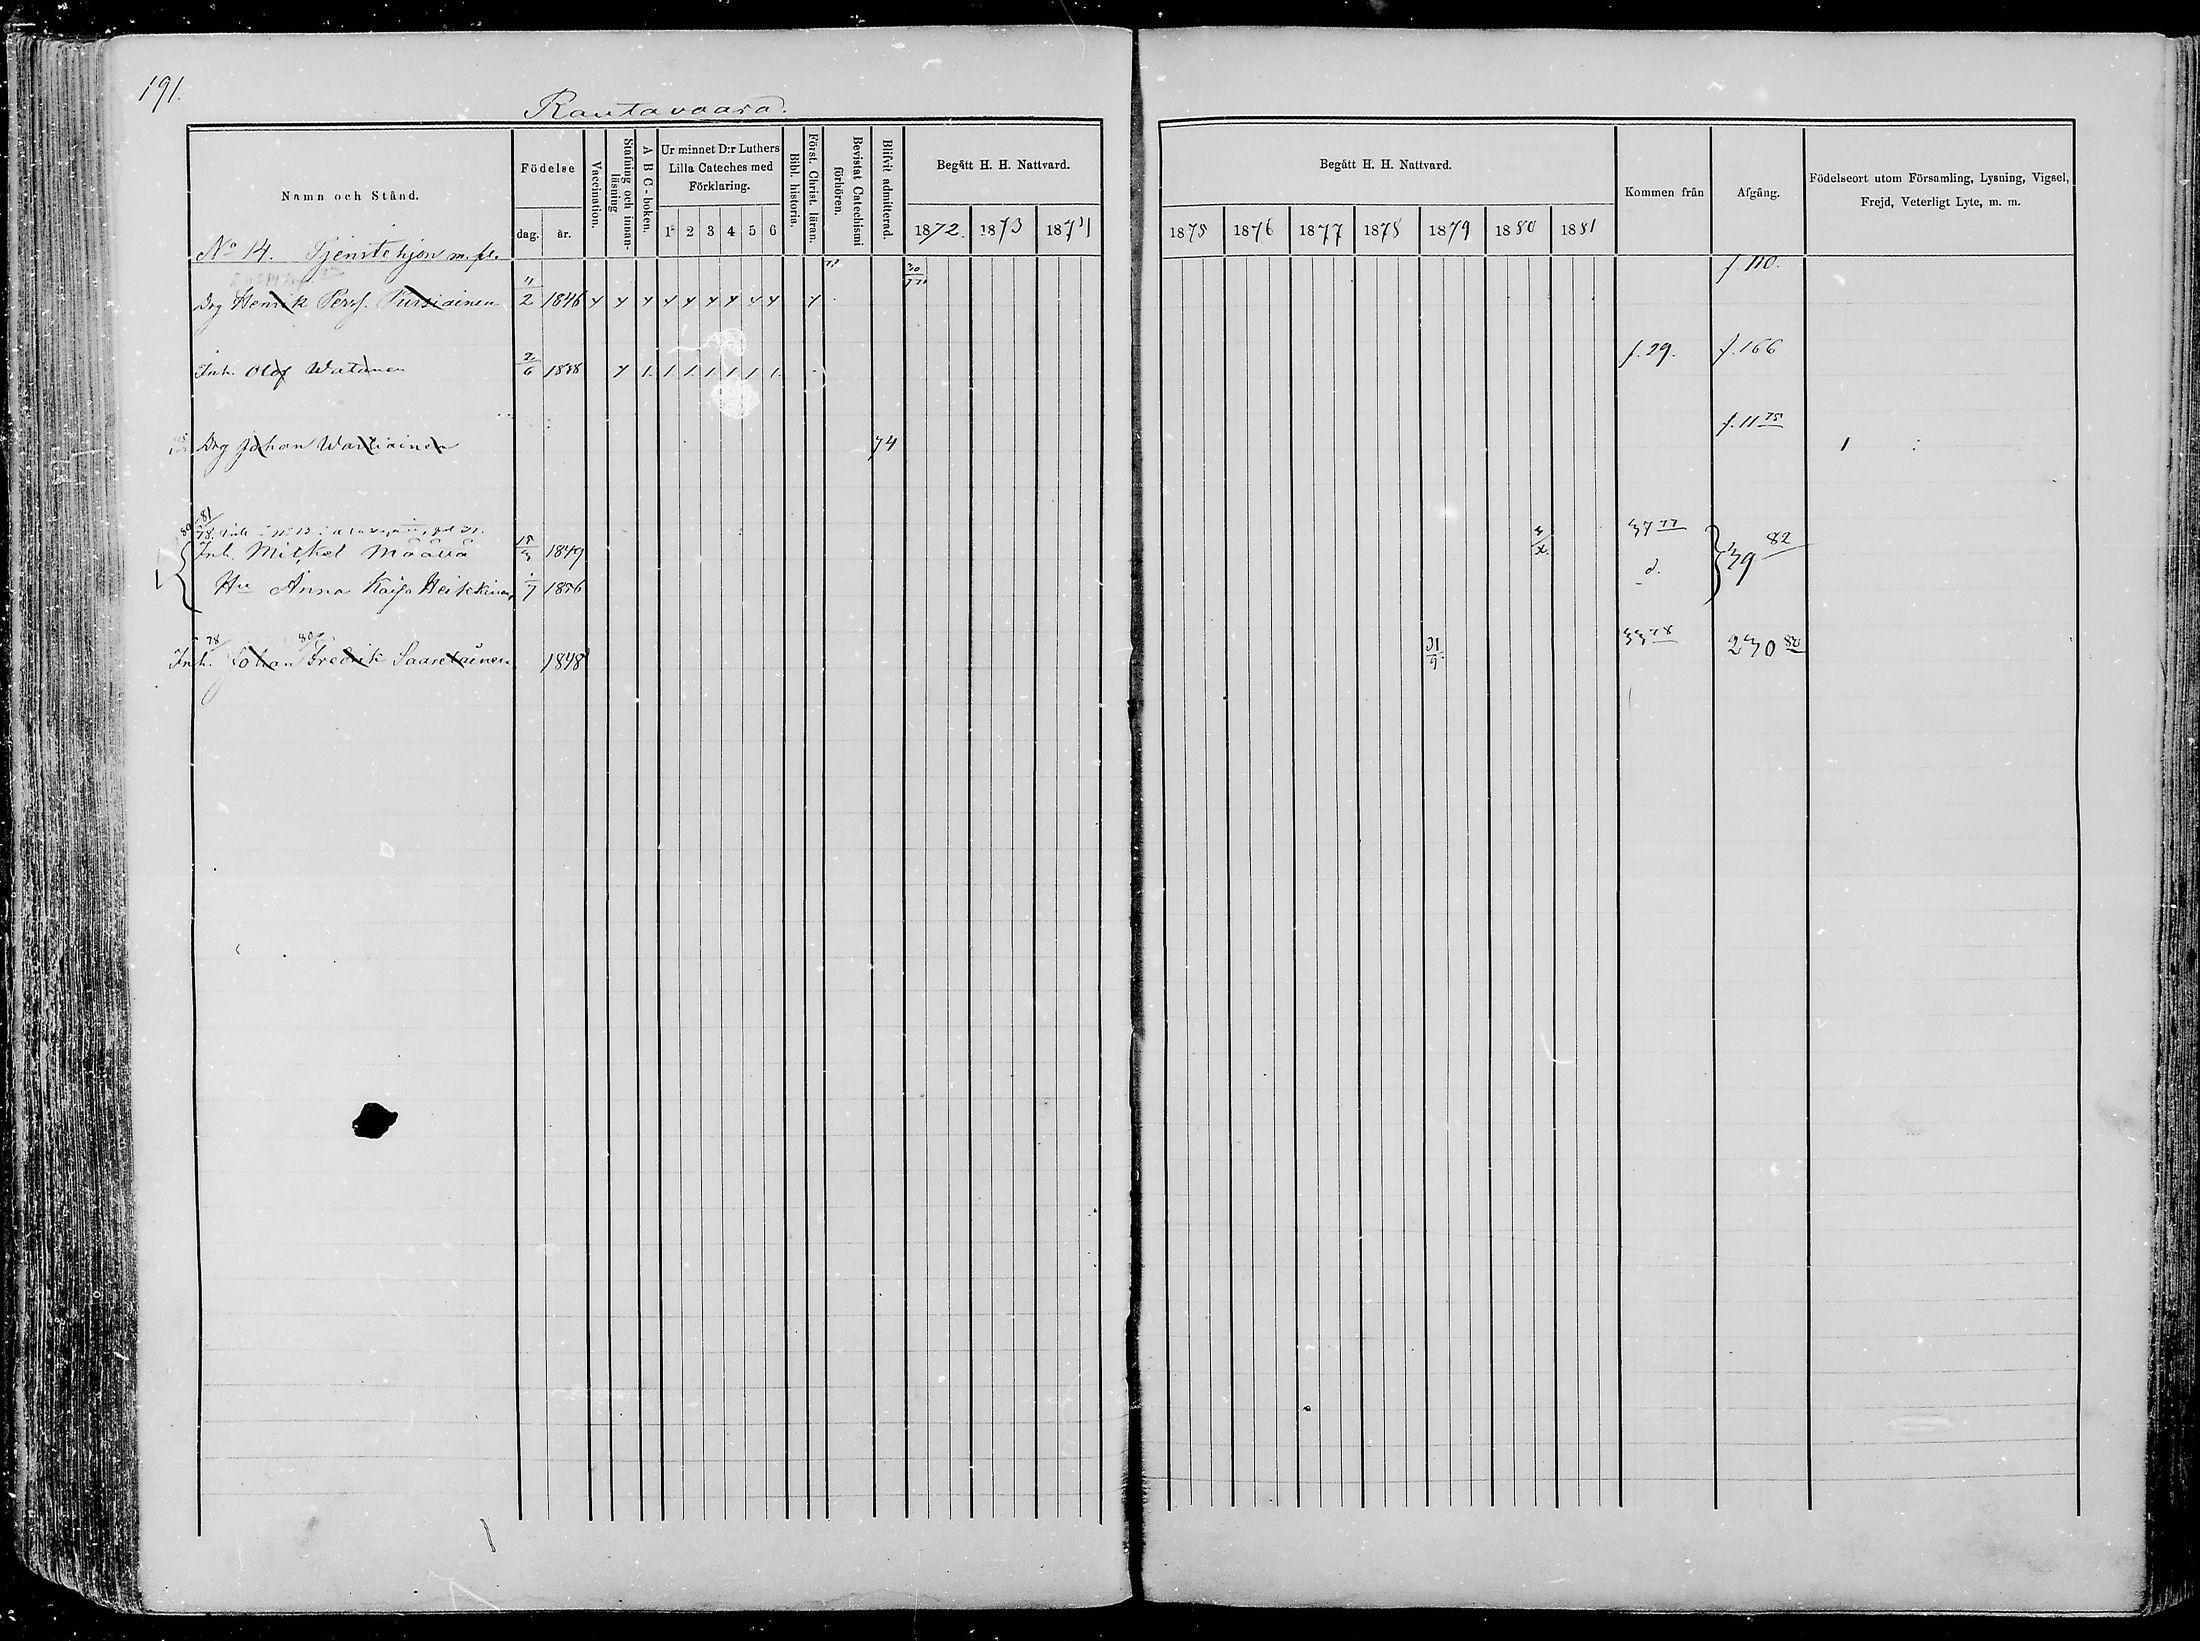 191.
Rautavaara.
Namn och Stånd.
Födelse
dag.
år.
Vaccination.
Stafning och innanläsning
A B C-boken.
Ur minnet D:r Luthers Lilla Cateches med Förklaring.
1 2 3 4 5 6
Bibl. historia.
Först. Christ. läran.
Bevistat Catechismi förhören.
Blifvit admitterad.
Begått H. H. Nattvard.
1872. 1873 1874
Begått H. H. Nattvard.
1875 1876 1877 1878 1879 1880 1881
Kommen från
Afgång.
Födelseort utom Församling, Lysning, Vigsel, Frejd, Veterligt Lyte, m. m.
No 14. Tjenstehjon m. fl.
Drg Henrik Perss. Pursiainen 11/2 1846 f. 110.
Inh. Olof Watanen 2/6 1838 f. 29. f. 166
Drg Johan Wartiainen 74 f. 11 75
81
78.
Inh. Mikkel Määttä 15/3 1849 37 77 39 82
Hu Anna Kaisa Heikkinen /7 1856 d.
78 80
Inh. Johan Fredrik Saarelainen 1848 31/9 33 78 230 80